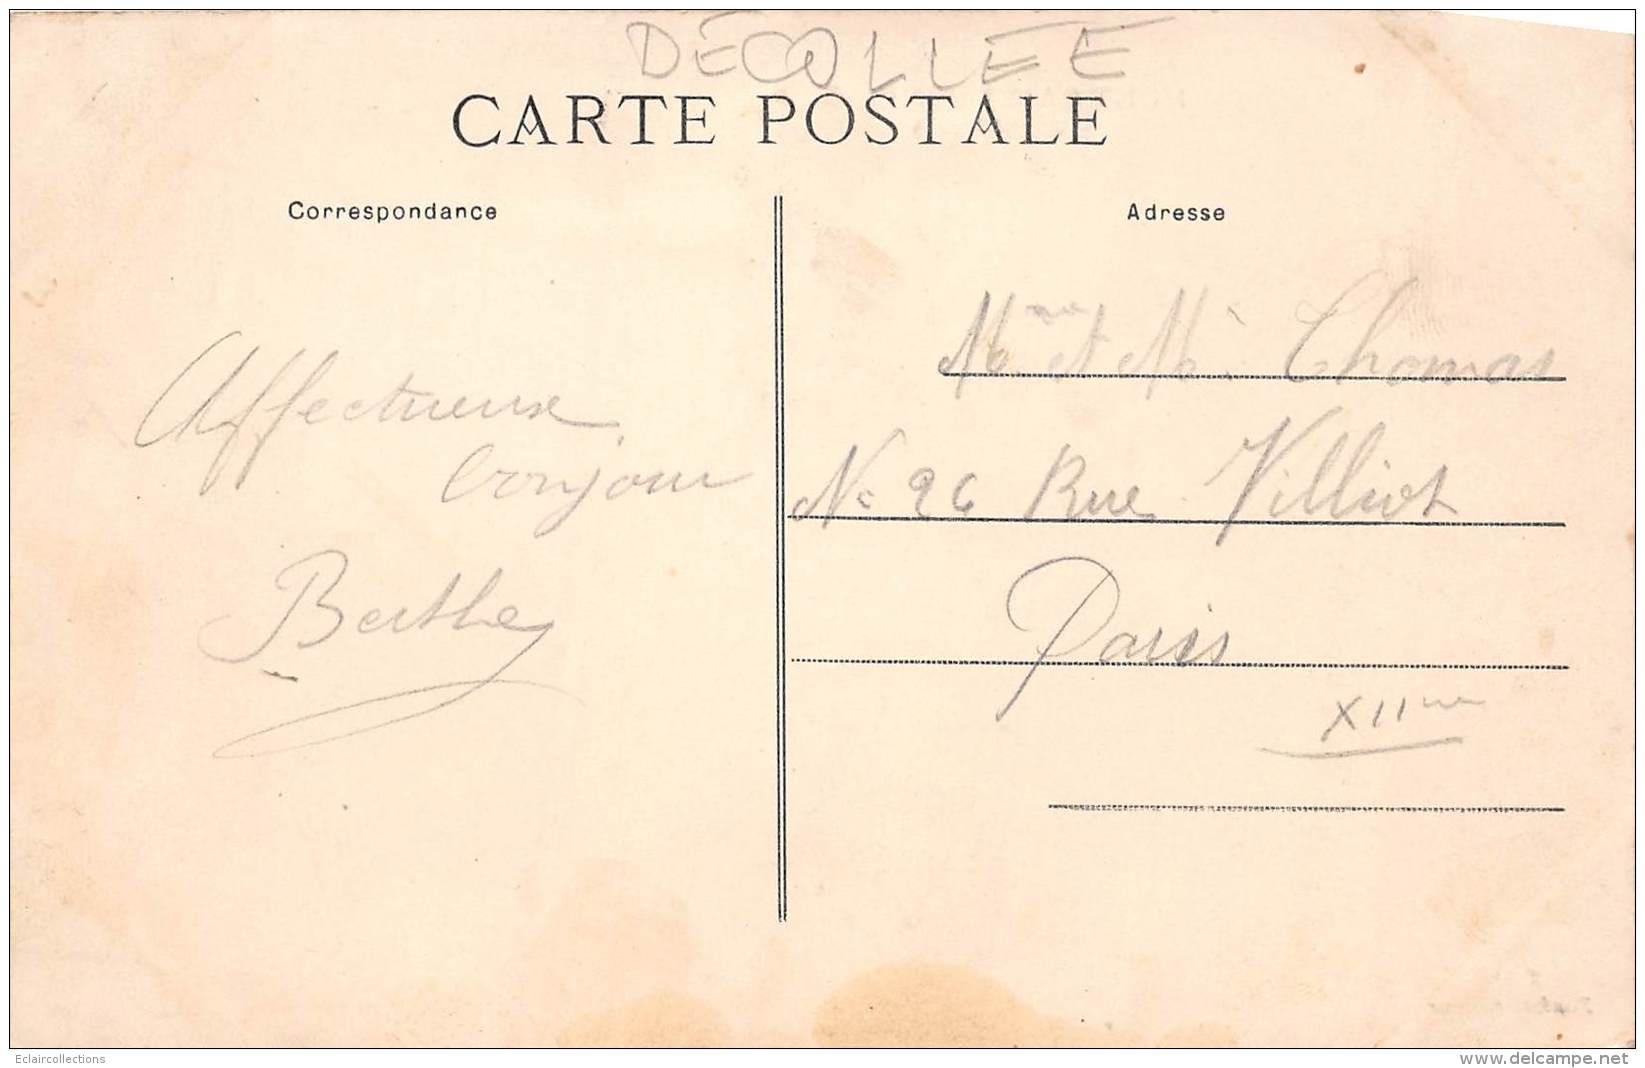 DÉCOLLÉE
CARTE POSTALE
Correspondance
Adresse
Affectueux
bonjour
Berthe
Mme et Mr. Thomas
No 26 Rue Villiot
Paris
XIIme
Eclaircollections
delcampe.net